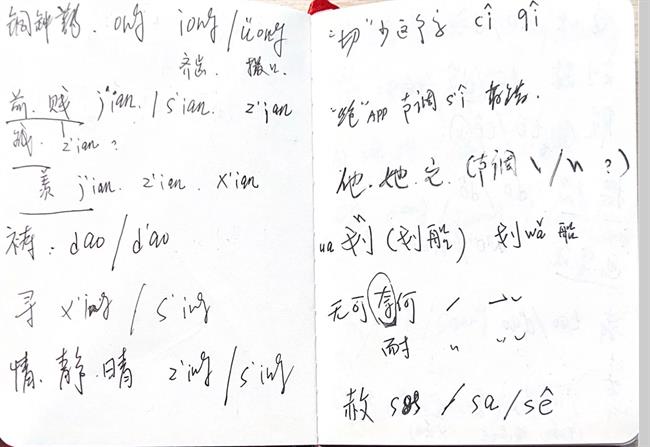 铜钟鹅. ong iong / üong
齐齿. 撮口.
前. 贱 j'ian. / s'ian. z'ian
贱. z'ian ?
羡 j'ian. z'ian. x'ian
祷: dao / d'ao
寻 x'ing / s'ing
情. 静. 晴 z'ing / s'ing
"切" 少这个字 cî qî
"绝" APP 声调 sî 有错.
他. 她. 它. (声调 \ / 〃 ?)
ua 划 (划船) 划 wǎ 船
无可奈何
耐
赦 / sa / sê